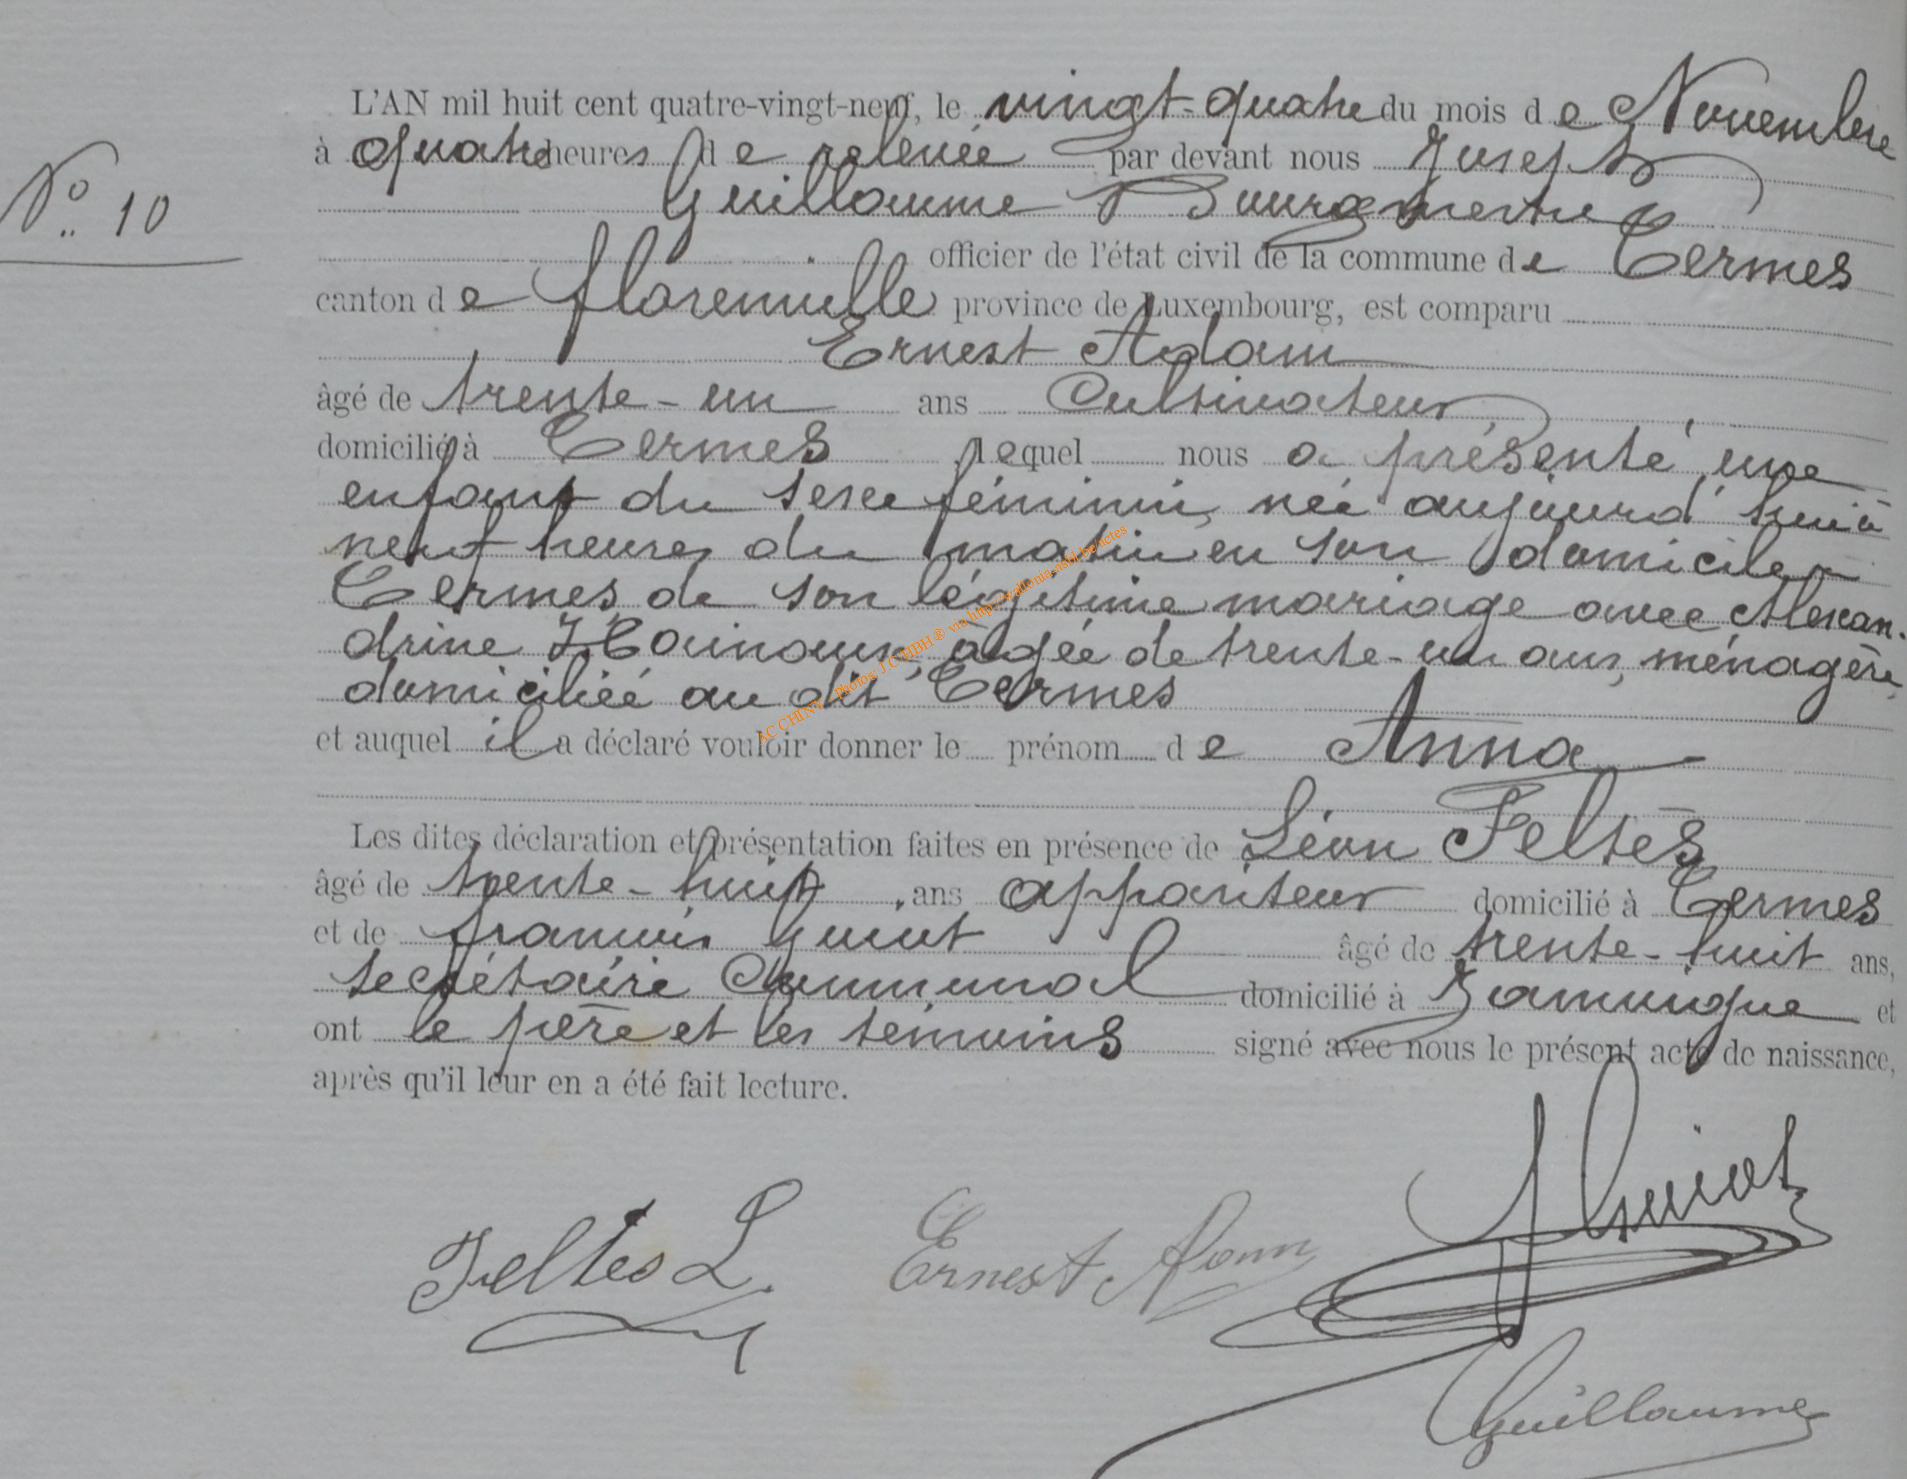 L'AN mil huit cent quatre-vingt-neuf, le vingt-quatre du mois de Novembre
à quatre heures de relevée par devant nous Joseph
N° 10
Guillaume Bourgmestre
officier de l'état civil de la commune de Termes
canton de florenville province de Luxembourg, est comparu
Ernest Adam
âgé de trente-un ans Cultivateur
domicilié à Termes lequel nous a présenté une
enfant du sexe féminin, née aujourd'hui à
neuf heures du matin en son domicile à
Termes de son légitime mariage avec Alexan-
drine Hainaux, âgée de trente-un ans, ménagère,
domiciliée au dit Termes
et auquel il a déclaré vouloir donner le prénom de Anna
Les dites déclaration et présentation faites en présence de Léon Feltès
âgé de trente-huit ans appariteur domicilié à Termes
et de françois Guiot âgé de trente-huit ans,
secrétaire Communal domicilié à Jamoigne et
ont le père et les témoins signé avec nous le présent acte de naissance,
après qu'il leur en a été fait lecture.
Feltes L. Ernest Adam f Guiot
Guillaume
AC CHINY Photos J C MBH ® via http://wallonia-asbl.be/actes